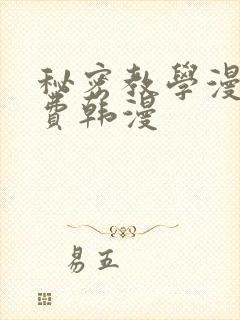 秘密教學漫
費韩漫
易五